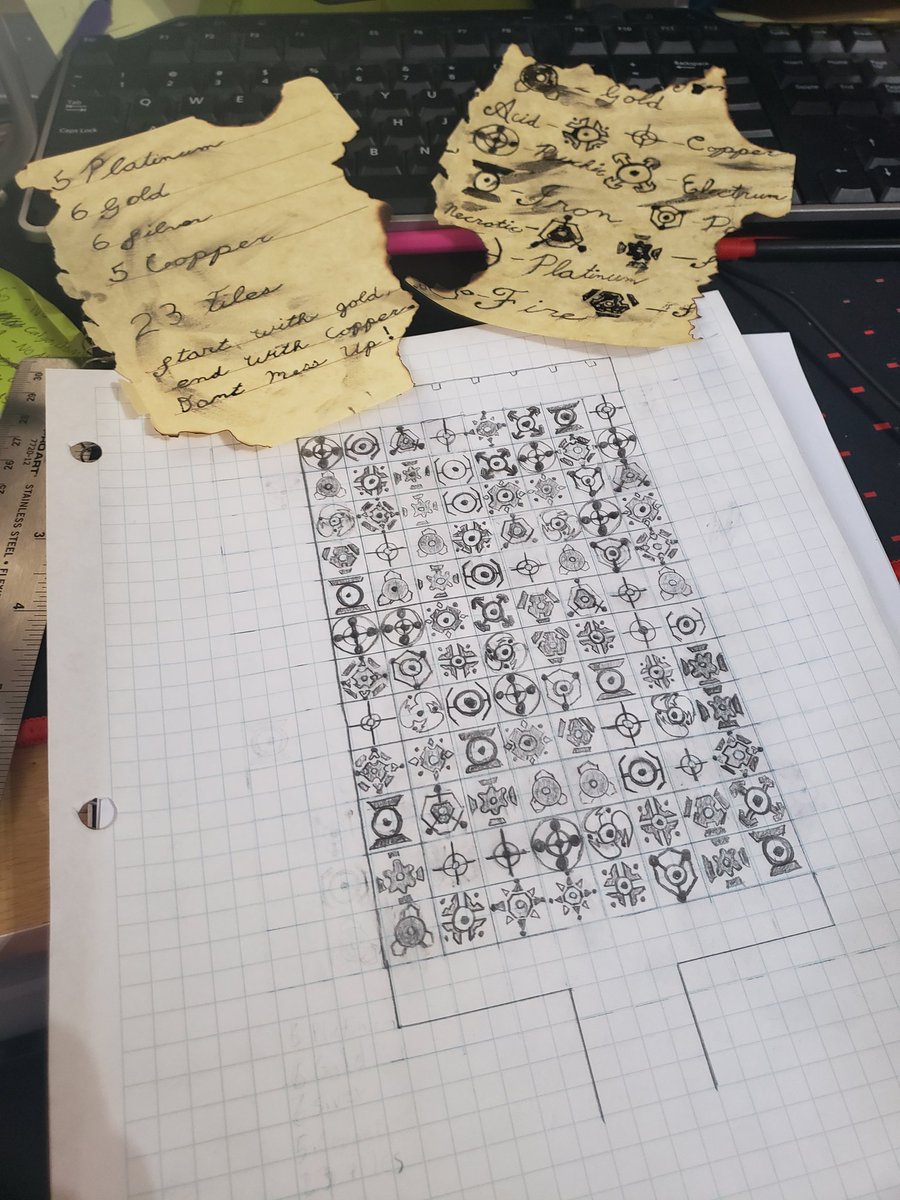 5 Platinum
6 Gold
6 Silver
5 Copper
23 Tiles
Start with gold,
end with Copper
Dont Mess Up!
- Gold
Acid -
- Copper
- Psychic
- Electrum
- Iron
Necrotic -
- Platinum
Fire
Tab
Caps Lock
Backspace
Q W E
T Y U
H J
B N
STAINLESS STEEL